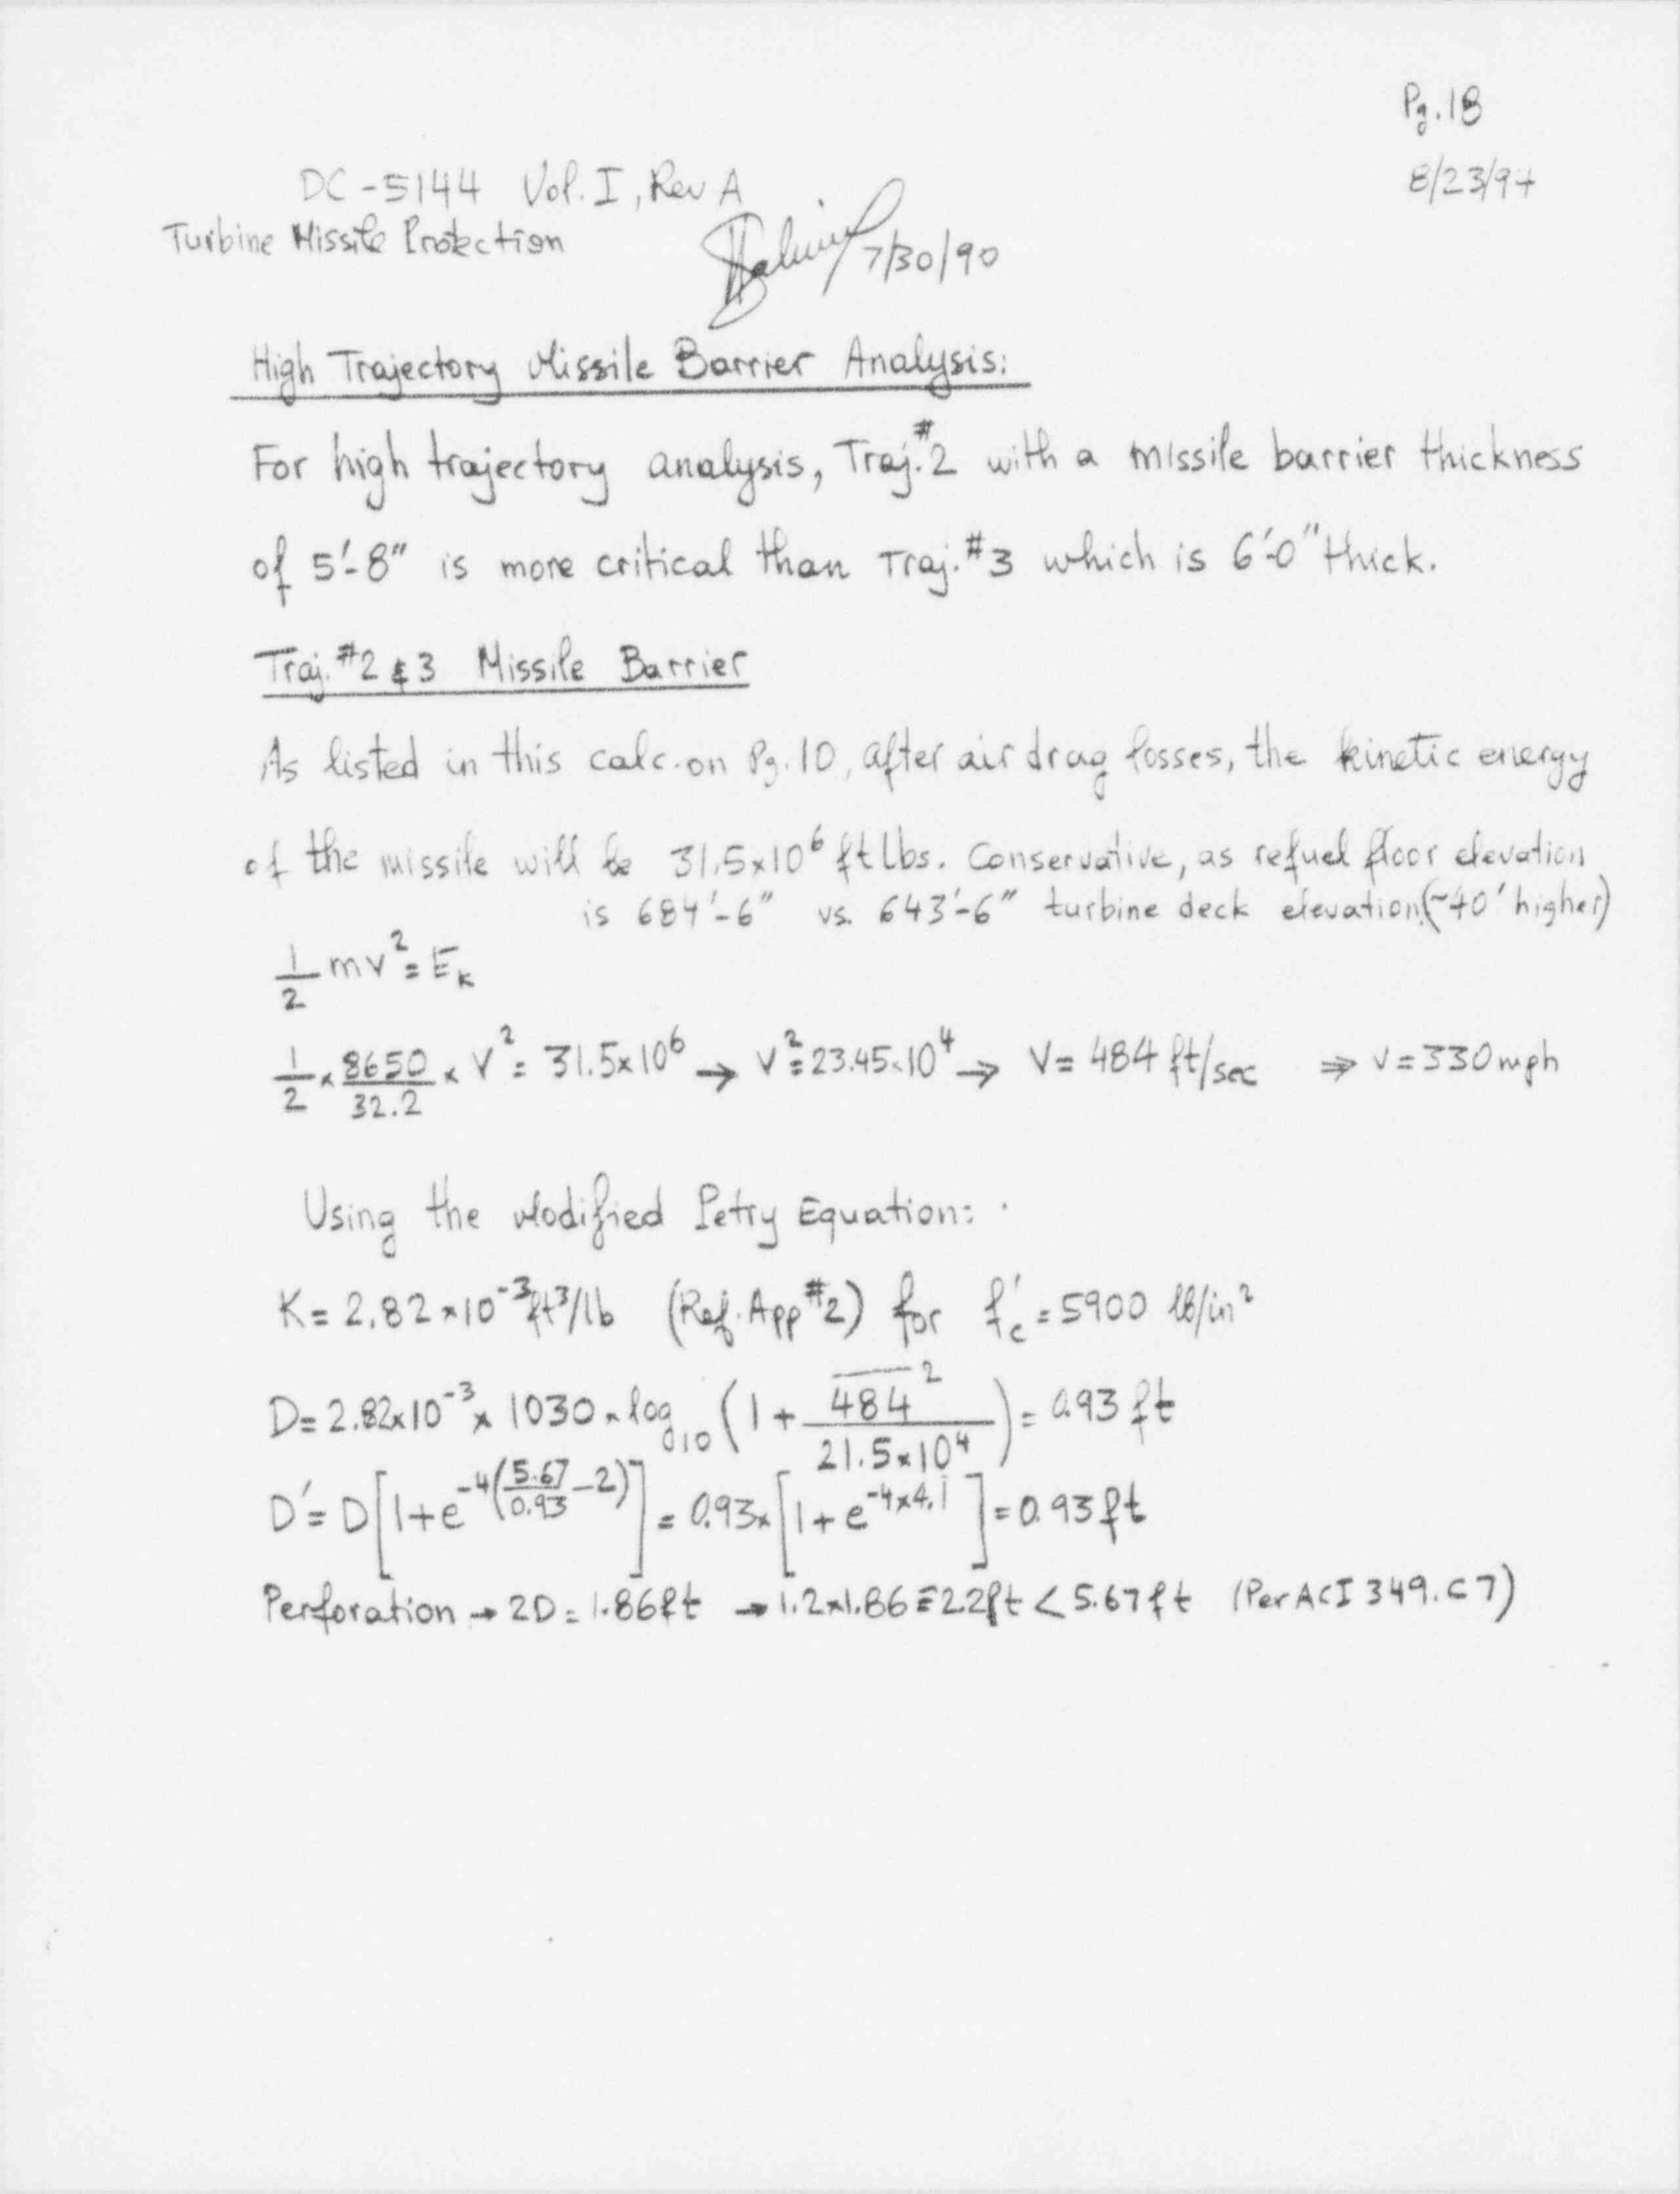 Pg. 18
8/23/94
DC-5144 Vol. I, Rev A
Turbine Missile Protection
7/30/90
High Trajectory Missile Barrier Analysis:
For high trajectory analysis, Traj.#2 with a missile barrier thickness
of 5'-8" is more critical than Traj.#3 which is 6'-0" thick.
Traj. #2 & 3 Missile Barrier
As listed in this calc. on Pg. 10, after air drag losses, the kinetic energy
of the missile will be 31.5×10⁶ ft lbs. Conservative, as refuel floor elevation
is 684'-6" vs. 643'-6" turbine deck elevation (~40' higher)
1/2 mv² = E_K
1/2 × 8650/32.2 × V² = 31.5×10⁶ → V² = 23.45×10⁴ → V = 484 ft/sec ⇒ V = 330 mph
Using the Modified Petry Equation:
K = 2.82×10⁻³ ft³/lb (Ref. App #2) for f'c = 5900 lb/in²
D = 2.82×10⁻³ × 1030 × log₁₀ (1 + 484²/21.5×10⁴) = 0.93 ft
D' = D[1+e^-4(5.67/0.93 - 2)] = 0.93×[1+e^-4×4.1] = 0.93 ft
Perforation → 2D = 1.86 ft → 1.2×1.86 = 2.2 ft < 5.67 ft (Per ACI 349. C7)